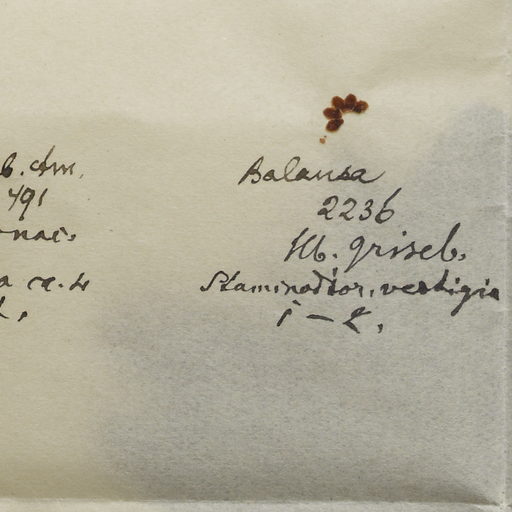 b. Am.
491
Balansa
2236
Hb. Griseb.
Staminodior. vestigia
1 – 2.